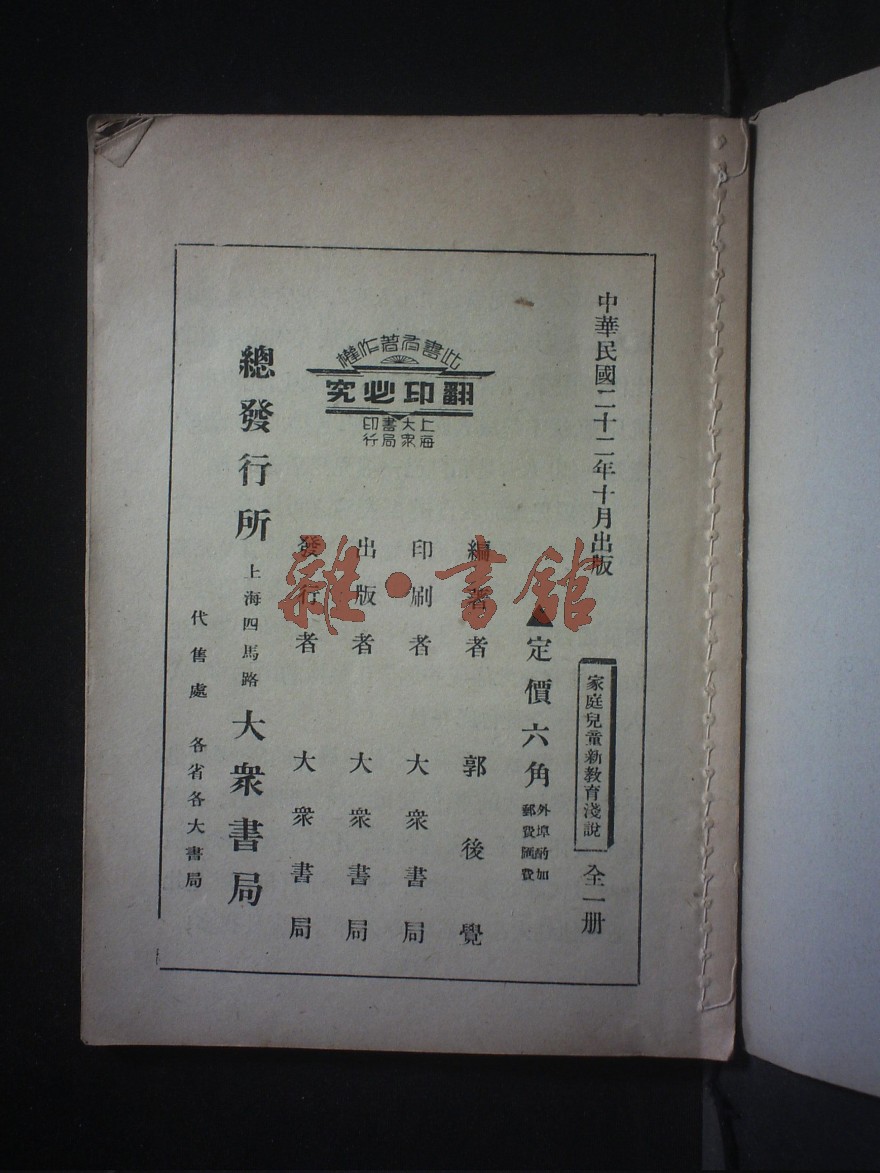 中華民國二十二年十月出版
家庭兒童新敎育淺說 全一册
▲定價六角 外埠酌加郵費匯費
編著者 郭後覺
印刷者 大衆書局
出版者 大衆書局
發行者 大衆書局
此書有著作權
翻印必究
上海大衆書局印行
總發行所 上海四馬路 大衆書局
代售處 各省各大書局
雜·書館